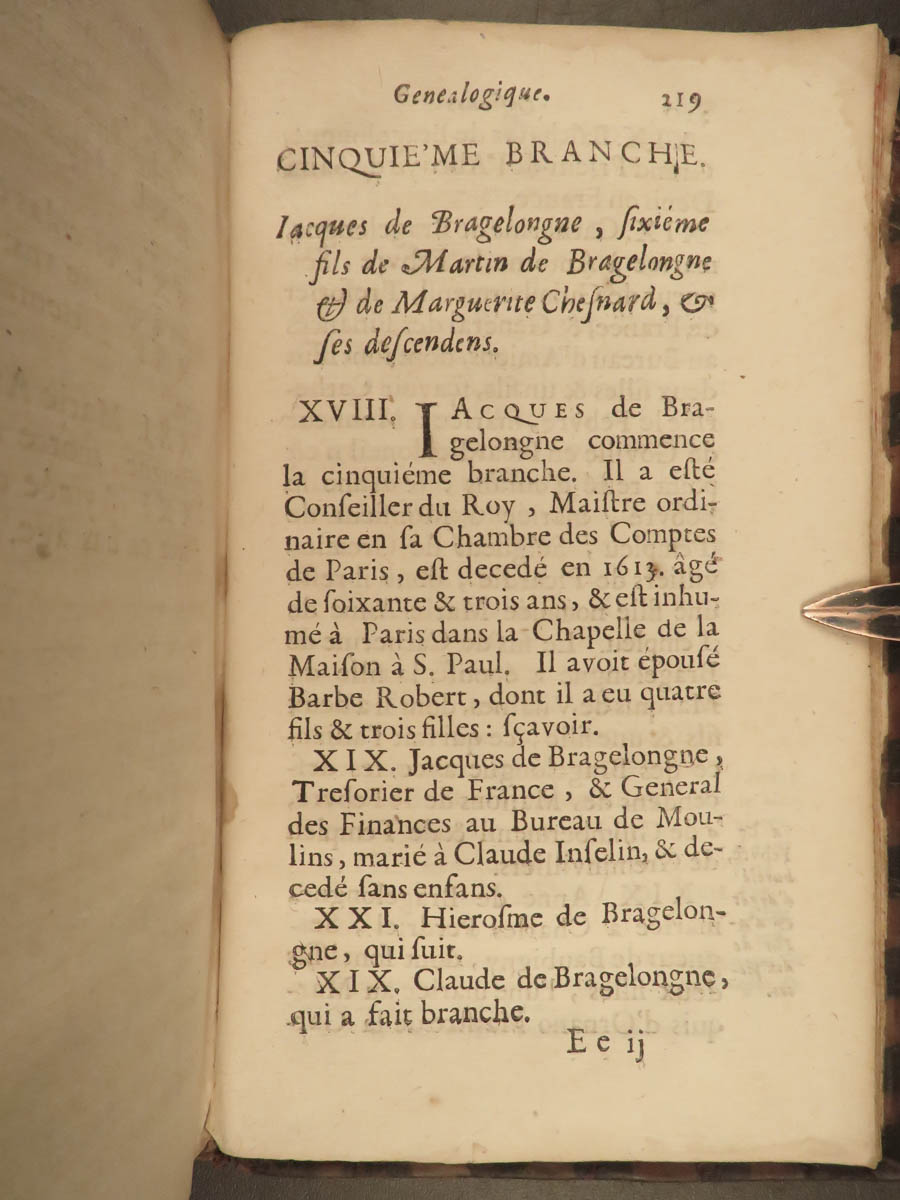 Genealogique. 219
CINQUIE'ME BRANCHE.
Iacques de Bragelongne , ſixiéme
fils de Martin de Bragelongne
& de Marguerite Cheſnard, &
ſes deſcendens.
XVIII. IACQUES de Bra-
gelongne commence
la cinquiéme branche. Il a eſté
Conſeiller du Roy , Maiſtre ordi-
naire en ſa Chambre des Comptes
de Paris , eſt decedé en 1613. âgé
de ſoixante & trois ans, & eſt inhu-
mé à Paris dans la Chapelle de la
Maiſon à S. Paul. Il avoit épouſé
Barbe Robert, dont il a eu quatre
fils & trois filles : ſçavoir.
XIX. Jacques de Bragelongne,
Treſorier de France , & General
des Finances au Bureau de Mou-
lins, marié à Claude Inſelin, & de-
cedé ſans enfans.
XXI. Hieroſme de Bragelon-
gne, qui ſuit.
XIX. Claude de Bragelongne,
qui a fait branche.
E e ij